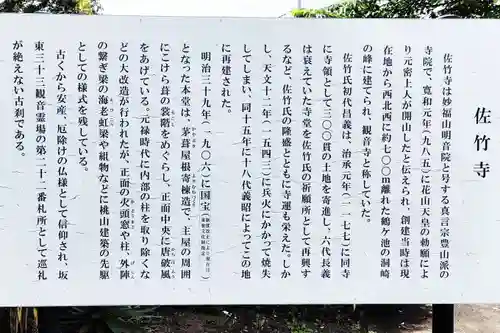 佐竹寺
佐竹寺は妙福山明音院と号する真言宗豊山派の
寺院で、寛和元年(九八五)に花山天皇の勅願によ
り元密上人が開山したと伝えられ、創建当時は現
在地から西北西に約七〇〇m離れた鶴ヶ池の洞崎
の峰に建てられ、観音寺と称していた。
佐竹氏初代昌義は、治承元年(一一七七)に同寺
に寺領として三〇〇貫の土地を寄進し、六代長義
は衰えていた寺堂を佐竹氏の祈願所として再興す
るなど、佐竹氏の隆盛とともに寺運も栄えた。しか
し、天文十二年(一五四三)に兵火にかかって焼失
してしまい、同十五年に十八代義昭によってこの地
に再建された。
明治三十九年(一九〇六)に国宝(
となった本堂は、茅葺屋根寄棟造で、主屋の周囲
にこけら葺の裳階をめぐらし、正面中央に唐破風
をあげている。元禄時代に内部の柱を取り除くな
どの大改造が行われたが、正面の火頭窓や柱、外陣
の繋ぎ梁の海老虹梁や組物などに桃山建築の先駆
としての様式を残している。
古くから安産、厄除けの仏様として信仰され、坂
東三十三観音霊場の第二十二番札所として巡礼
が絶えない古刹である。